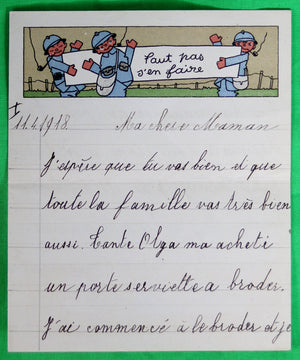 Faut pas
s'en faire
I
11.4.1918. Ma chere Maman
J'espère que tu vas bien et que
toute la famille vas très bien
aussi. Tante Olga ma acheté
un porte serviette a broder.
J'ai commencé à le broder et je